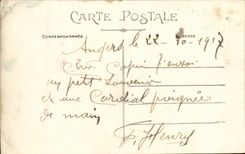 CARTE POSTALE
CORRESPONDANCE
ADRESSE
Angers le 22-10-1917
Cher Copin j'envoi
un petit Souvenir
et une Cordial poignée
de main
Henry